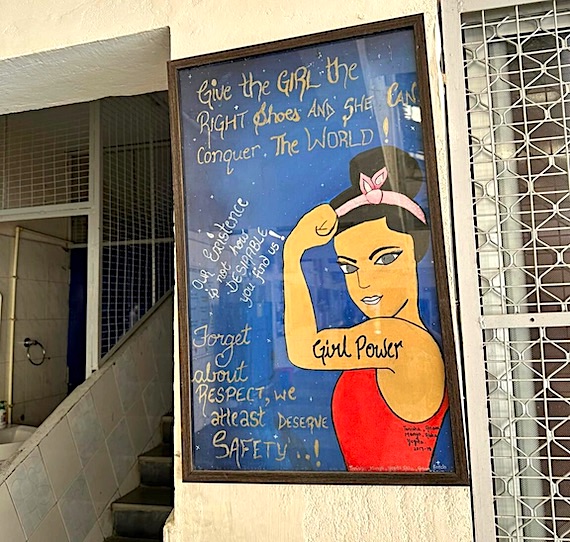 Give the GIRL the
RIGHT Shoes AND SHE CAN
Conquer. The WORLD !
Our Existence
is not how
DESIRABLE
you find us !
Forget
about
RESPECT, we
atleast DESERVE
SAFETY ..!
Girl Power